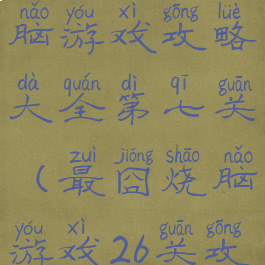 nǎo yóu xì gōng lüè
脑游戏攻略
dà quán dì qī guān
大全第七关
zuì jiǒng shāo nǎo
（最囧烧脑
yóu xì guān gōng
游戏26关攻